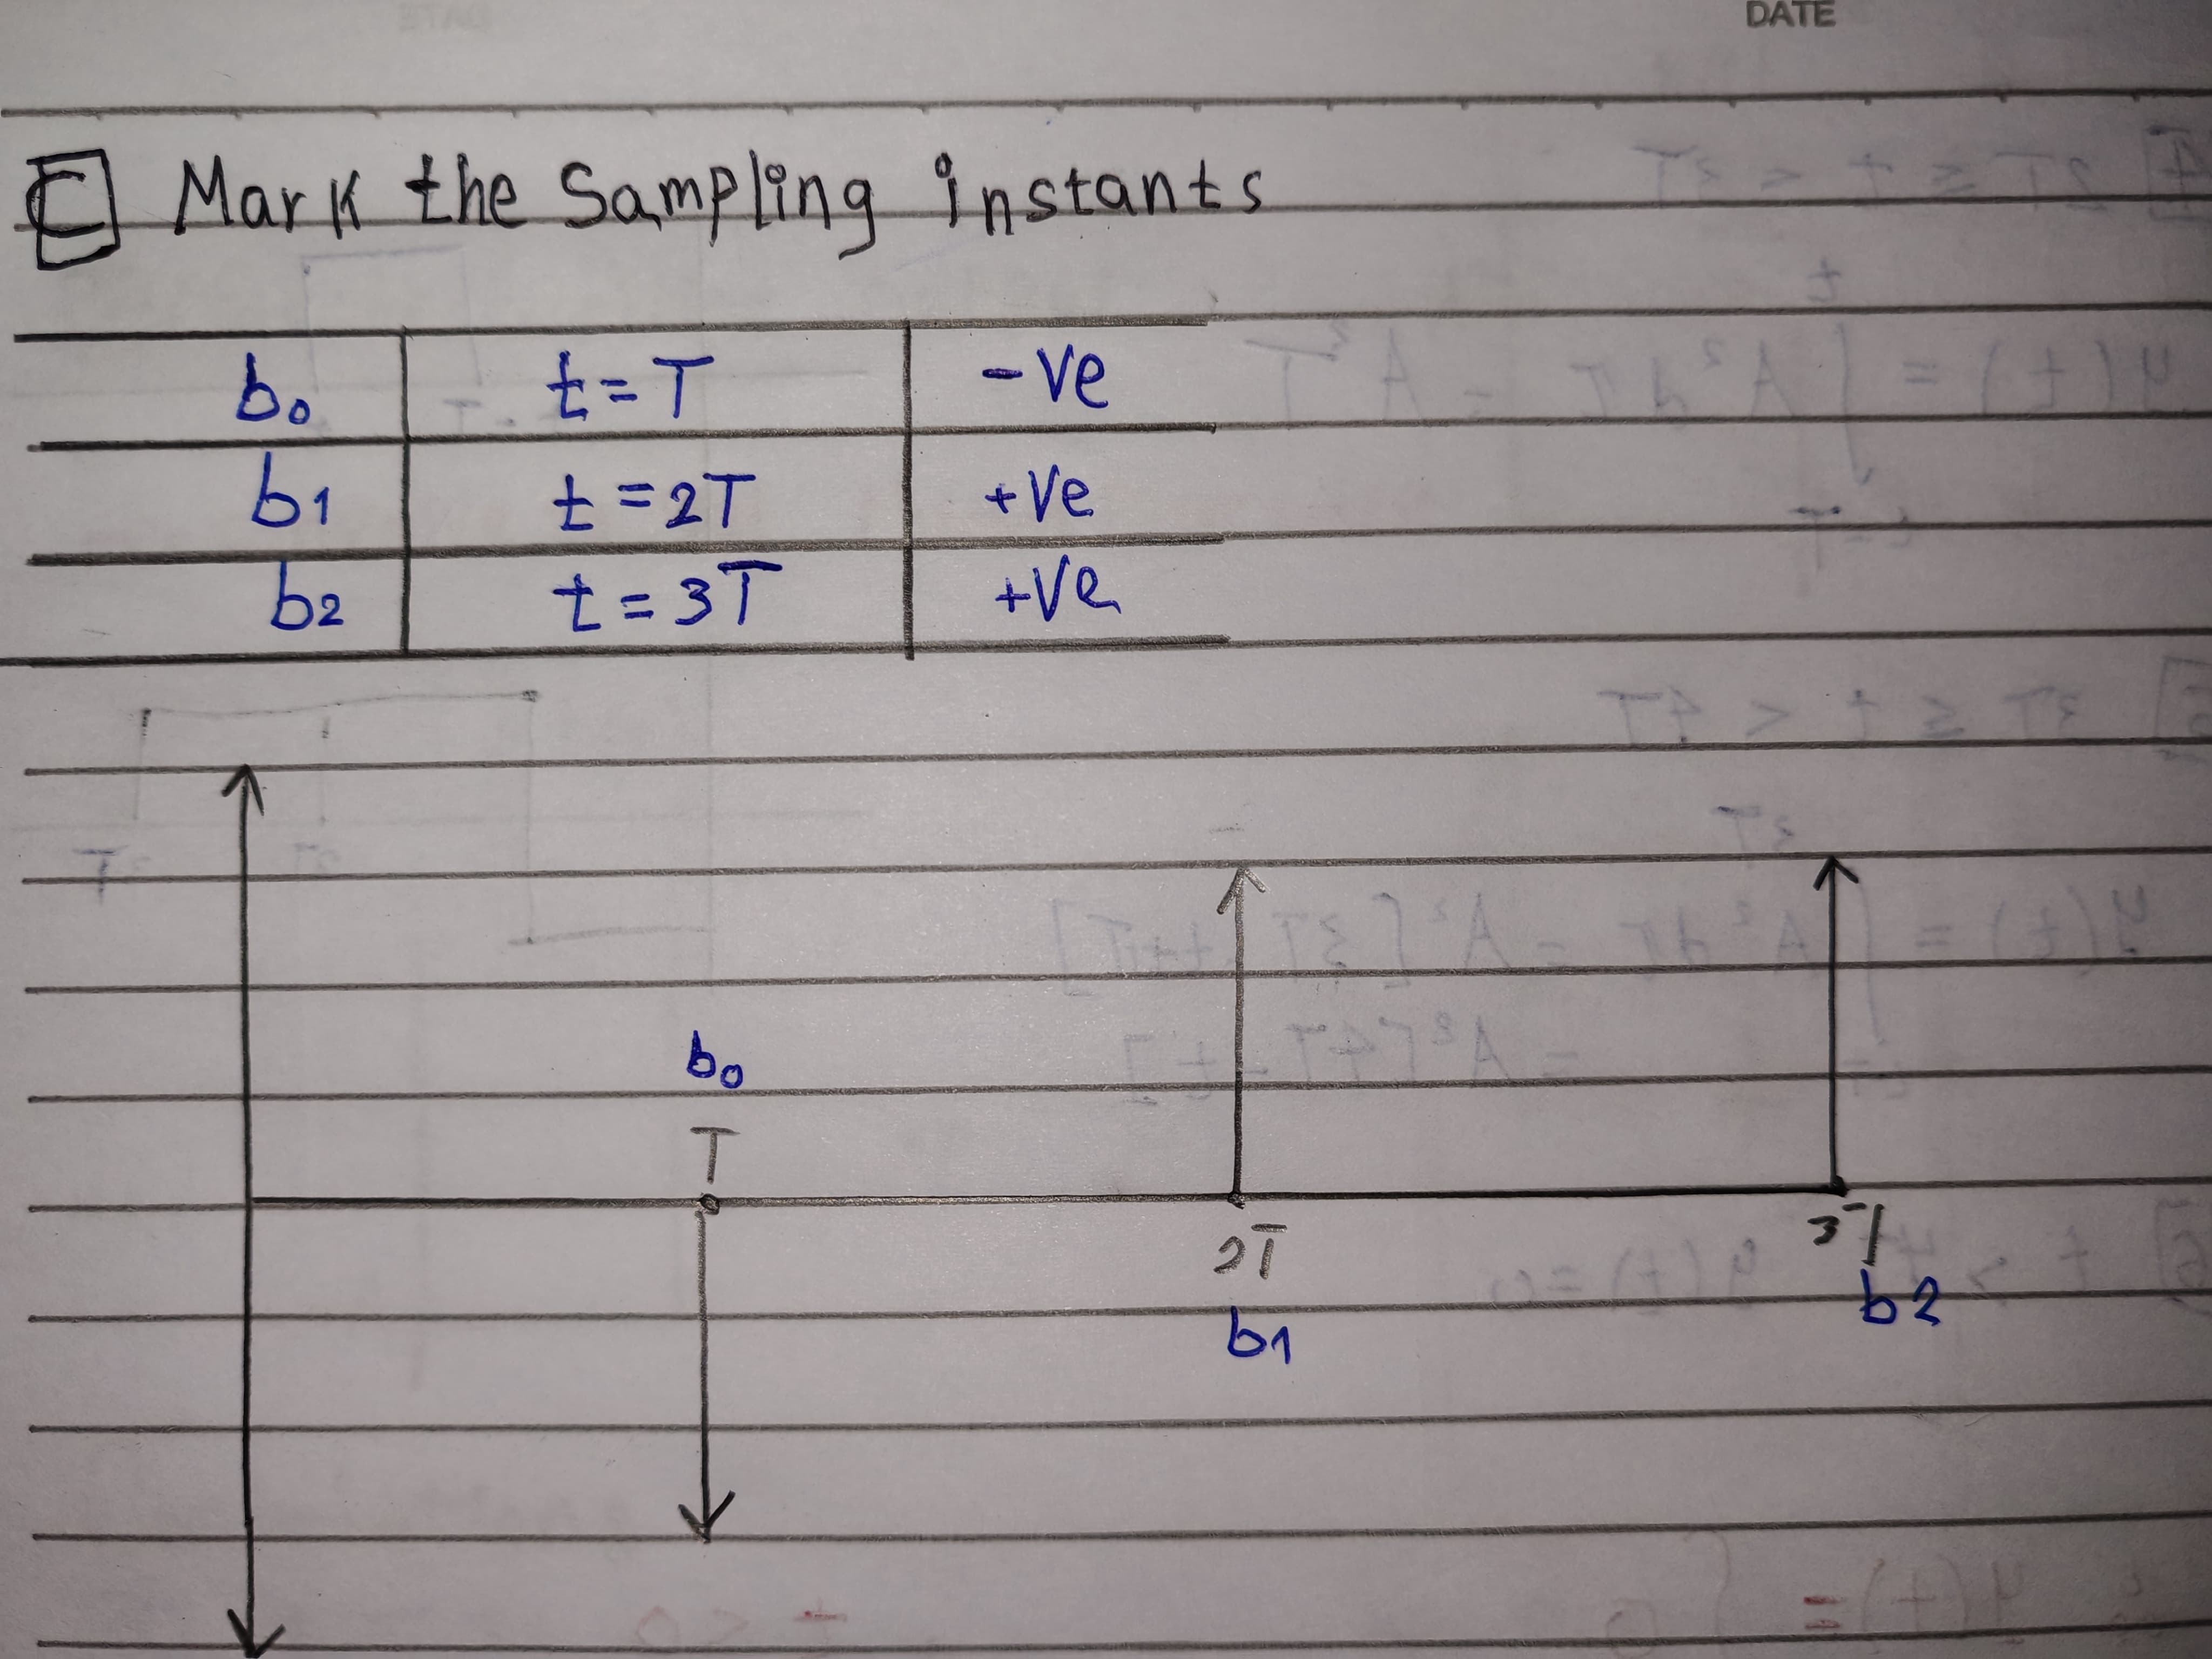 DATE
C Mark the Sampling instants
b0 t=T -ve
b1 t=2T +ve
b2 t=3T +ve
b0
T
2T
3T
b1
b2